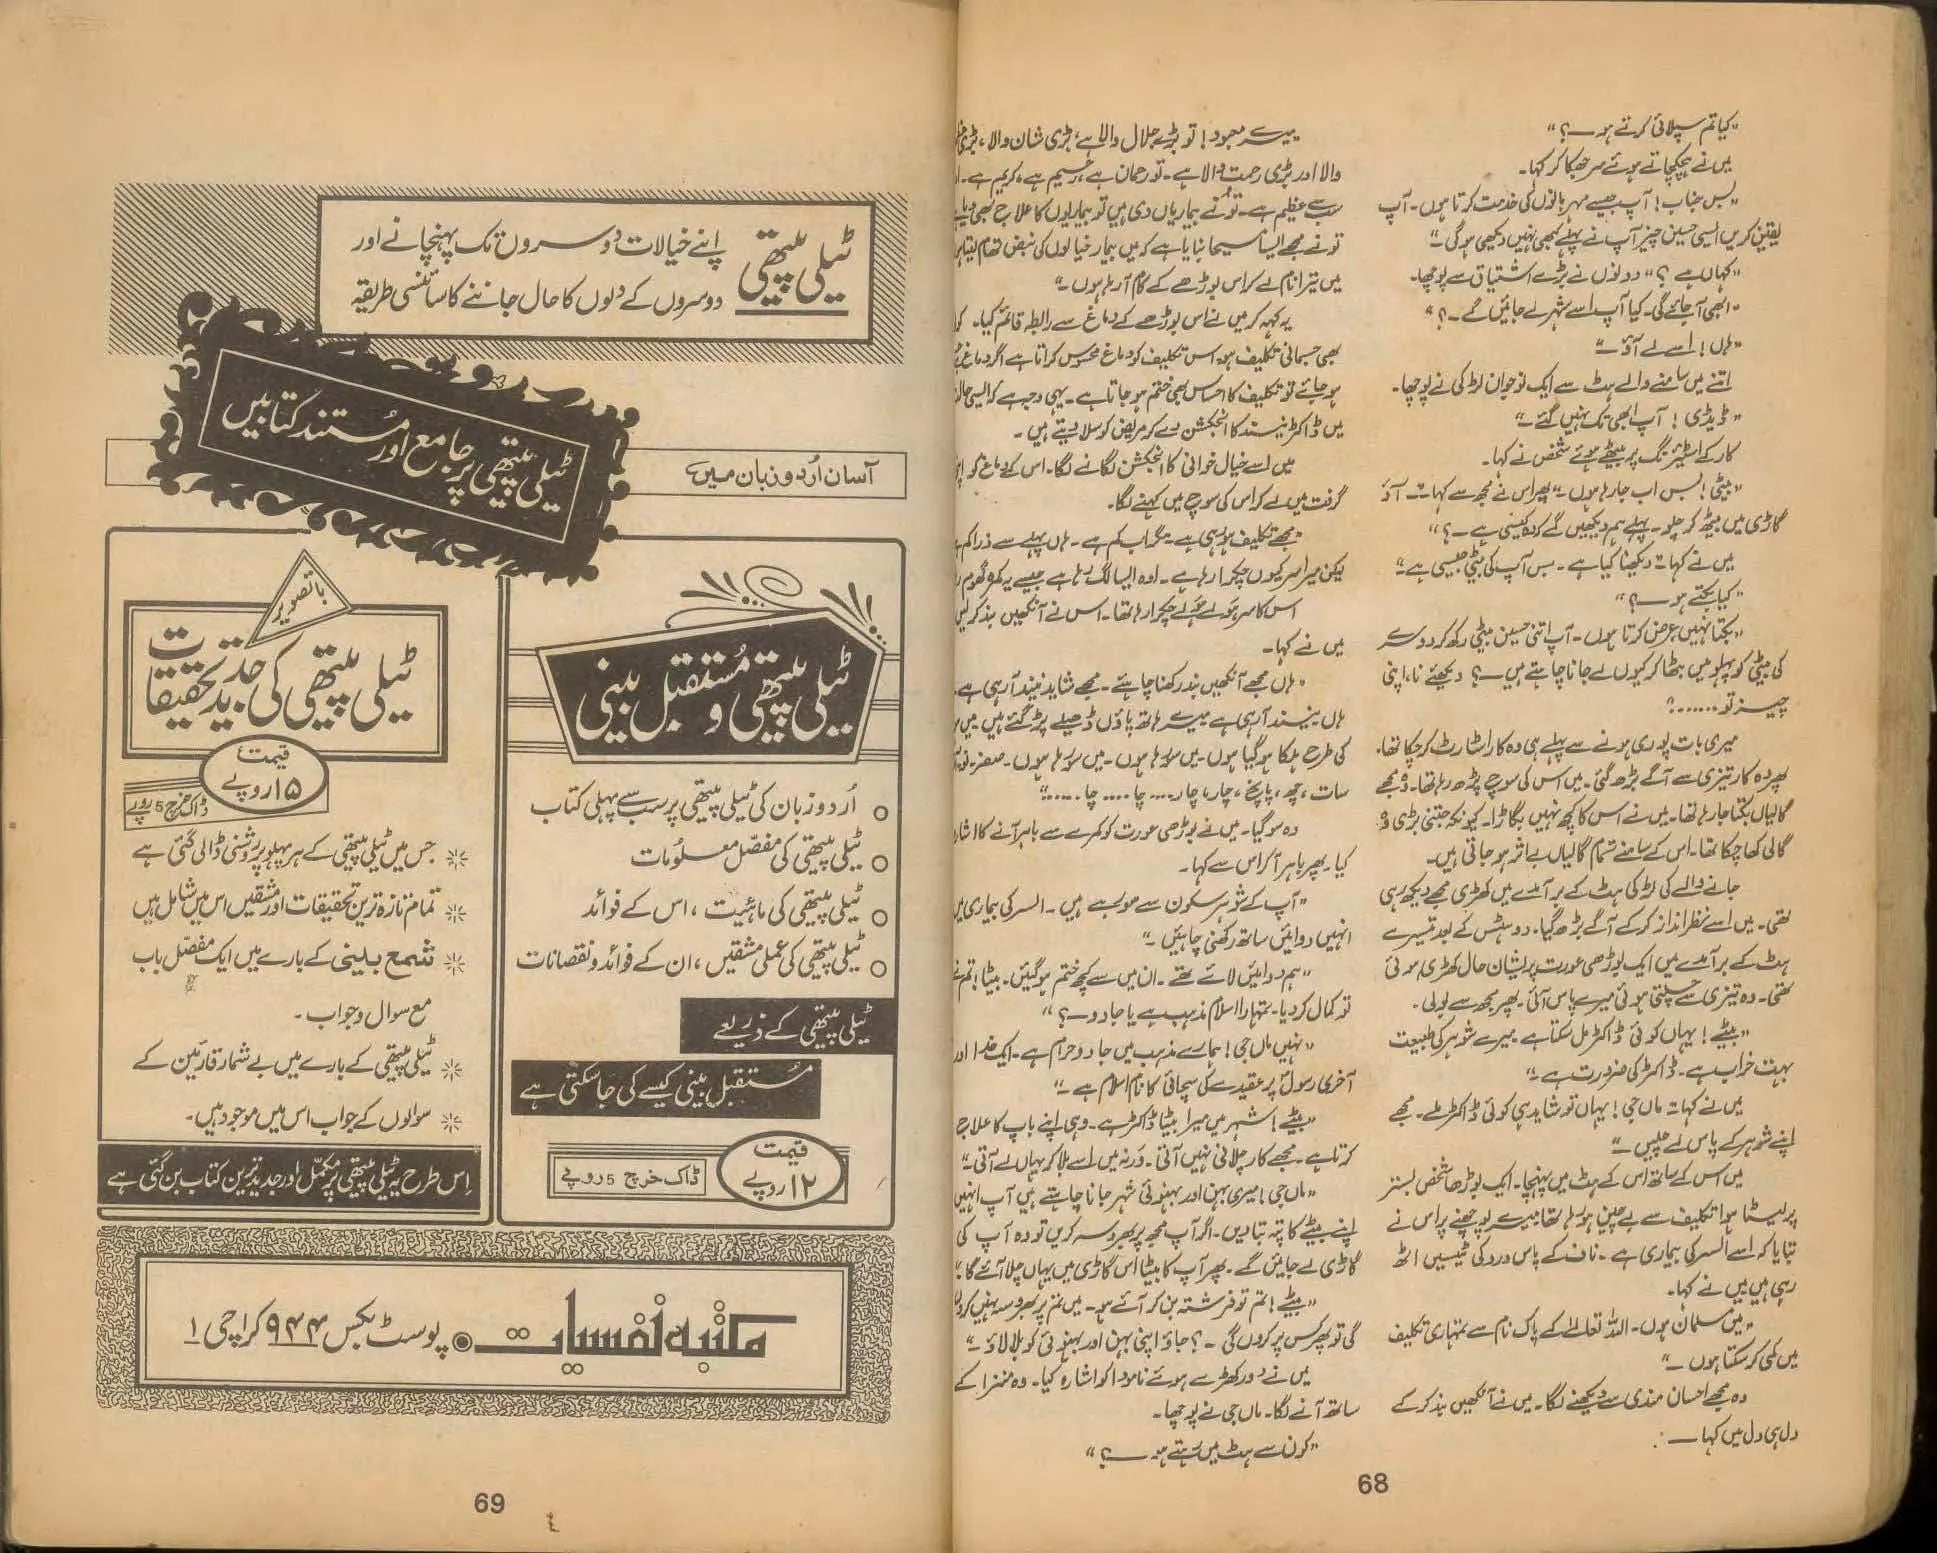 ”کیا تم سپلائی کرتے ہو ــــ؟“
میں نے ہچکچاتے ہوئے سر جھکا کر کہا۔
”بس جناب! آپ جیسے مہربانوں کی خدمت کرتا ہوں۔ آپ
یقین کریں ایسی حسین چیز آپ نے پہلے کبھی نہیں دیکھی ہوگی۔“
”کہاں ہے؟“ دونوں نے بڑے اشتیاق سے پوچھا۔
”ابھی آجائے گی۔ کیا آپ اسے شہر لے جائیں گے۔؟“
”ہاں! اسے لے آؤ۔“
اتنے میں سامنے والے ہٹ سے ایک نوجوان لڑکی نے پوچھا۔
”ڈیڈی! آپ ابھی تک نہیں گئے۔“
کار کے اسٹیئرنگ پر بیٹھے ہوئے شخص نے کہا۔
”بیٹی! بس اب جا رہا ہوں۔“ پھر اس نے مجھ سے کہا۔ ”آؤ
گاڑی میں بیٹھ کر چلو۔ پہلے ہم دیکھیں گے کہ وہ کیسی ہے۔؟“
میں نے کہا۔ ”دیکھنا کیا ہے۔ بس آپ کی بیٹی جیسی ہے۔“
”کیا بکتے ہو ــــ؟“
”بکتا نہیں عرض کرتا ہوں۔ آپ اتنی حسین بیٹی رکھ کر دوسر
کی بیٹی کو پہلو میں بٹھا کر کیوں لے جانا چاہتے ہیں ــ؟ دیکھئے نا، اپنی
چیز تو .......“
میری بات پوری ہونے سے پہلے ہی وہ کار اسٹارٹ کر چکا تھا۔
پھر وہ کار تیزی سے آگے بڑھ گئی۔ میں اس کی سوچ پڑھ رہا تھا۔ وہ مجھے
گالیاں بکتا جا رہا تھا۔ میں نے اس کا کچھ نہیں بگاڑا۔ کیونکہ جتنی بڑی وہ
گالی کھا چکا تھا۔ اس کے سامنے تمام گالیاں بے اثر ہو جاتی ہیں۔
جانے والے کی لڑکی ہٹ کے برآمدے میں کھڑی مجھے دیکھ رہی
تھی۔ میں اسے نظر انداز کر کے آگے بڑھ گیا۔ دو ہٹس کے بعد تیسرے
ہٹ کے برآمدے میں ایک بوڑھی عورت پریشان حال کھڑی ہوئی
تھی۔ وہ تیزی سے چلتی ہوئی میرے پاس آئی۔ پھر مجھ سے بولی۔
”بیٹے! یہاں کوئی ڈاکٹر مل سکتا ہے میرے شوہر کی طبیعت
بہت خراب ہے۔ ڈاکٹر کی ضرورت ہے۔“
میں نے کہا۔ ”ماں جی! یہاں تو شاید ہی کوئی ڈاکٹر ملے۔ مجھے
اپنے شوہر کے پاس لے چلیں۔“
میں اس کے ساتھ اس کے ہٹ میں پہنچا۔ ایک بوڑھا شخص بستر
پر لیٹا ہوا تکلیف سے بے چین ہو رہا تھا میرے پوچھنے پر اس نے
بتایا کہ اسے السر کی بیماری ہے۔ ناف کے پاس درد کی ٹیسیں اٹھ
رہی ہیں میں نے کہا۔
”میں مسلمان ہوں۔ اللہ تعالیٰ کے پاک نام سے تمہاری تکلیف
میں کمی کر سکتا ہوں۔“
وہ مجھے احسان مندی سے دیکھنے لگا۔ میں نے آنکھیں بند کر کے
دل ہی دل میں کہا ــــ
میرے معبود! تو بڑے جلال والا ہے، بڑی شان والا،
والا اور بڑی رحمت والا ہے۔ تو رحمان ہے، رحیم ہے، کریم ہے۔
سب سے عظیم ہے۔ تو نے بیماریاں دی ہیں تو بیماریوں کا علاج بھی دیا ہے
تو نے مجھے ایسا مسیحا بنایا ہے کہ میں بیمار خیالوں کی نبض تھام لیتا ہوں
میں تیرا نام لے کر اس بوڑھے کے کام آ رہا ہوں۔“
یہ کہہ کر میں نے اس بوڑھے کے دماغ سے رابطہ قائم کیا۔
بھی جسمانی تکلیف ہو، اس تکلیف کو دماغ محسوس کراتا ہے اگر دماغ
ہو جائے تو تکلیف کا احساس بھی ختم ہو جاتا ہے۔ یہی وجہ ہے کہ ایسی حالت
میں ڈاکٹر نیند کا انجکشن دے کر مریض کو سلا دیتے ہیں۔
میں اسے خیال خوانی کا انجکشن لگانے لگا۔ اس کے دماغ کو
گرفت میں لے کر اس کی سوچ میں کہنے لگا۔
”مجھے تکلیف ہو رہی ہے۔ مگر اب کم ہے۔ ہاں پہلے سے ذرا کم
لیکن میرا سر کیوں چکرا رہا ہے۔ اوہ ایسا لگ رہا ہے جیسے یہ کمرہ گھوم
اس کا سر ہولے ہولے چکرا رہا تھا۔ اس نے آنکھیں بند کر لیں
میں نے کہا۔
”ہاں مجھے آنکھیں بند رکھنا چاہئے۔ مجھے شاید نیند آ رہی ہے۔
ہاں نیند آ رہی ہے میرے ہاتھ پاؤں ڈھیلے پڑ گئے ہیں میں
کی طرح ہلکا ہو گیا ہوں۔ میں سو رہا ہوں۔ میں سو رہا ہوں۔ صفر۔ نو۔
سات، چھ، پانچ، چار، چار.... چا.... چا......“
وہ سو گیا۔ میں نے بوڑھی عورت کو کمرے سے باہر آنے کا اشارہ
کیا۔ پھر باہر آ کر اس سے کہا۔
”آپ کے شوہر سکون سے سو رہے ہیں۔ السر کی بیماری میں
انہیں دوائیں ساتھ رکھنی چاہئیں۔“
”ہم دوائیں لائے تھے۔ ان میں سے کچھ ختم ہو گئیں۔ بیٹا! تم نے
تو کمال کر دیا۔ تمہارا اسلام مذہب ہے یا جادو ــــ؟“
”نہیں ماں جی! ہمارے مذہب میں جادو حرام ہے۔ ایک خدا اور
آخری رسولؐ پر عقیدے کی سچائی کا نام اسلام ہے۔“
”بیٹے! شہر میں میرا بیٹا ڈاکٹر ہے۔ وہی اپنے باپ کا علاج
کرتا ہے۔ مجھے کار چلانی نہیں آتی۔ ورنہ میں اسے بلا کر یہاں لے آتی۔“
”ماں جی! میری بہن اور بہنوئی شہر جانا چاہتے ہیں آپ انہیں
اپنے بیٹے کا پتہ بتا دیں۔ اگر آپ مجھ پر بھروسہ کریں تو وہ آپ کی
گاڑی لے جائیں گے۔ پھر آپ کا بیٹا اس گاڑی میں یہاں چلا آئے گا۔“
”بیٹے! تم تو فرشتہ بن کر آئے ہو۔ میں تم پر بھروسہ نہیں کروں
گی تو پھر کس پر کروں گی۔؟ جاؤ اپنی بہن اور بہنوئی کو بلا لاؤ۔“
میں نے دور کھڑے ہوئے نامودا کو اشارہ کیا۔ وہ منہزا کے
ساتھ آنے لگا۔ ماں جی نے پوچھا۔
”کون سے ہٹ میں رہتے ہو ــــ؟“
68
ٹیلی پیتھی
اپنے خیالات دوسروں تک پہنچانے اور
دوسروں کے دلوں کا حال جاننے کا سائنسی طریقہ
ٹیلی پیتھی پر جامع اور مستند کتابیں
آسان اُردو زبان میں
ٹیلی پیتھی و مُستقبل بینی
○ اُردو زبان کی ٹیلی پیتھی پر سب سے پہلی کتاب
○ ٹیلی پیتھی کی مفصّل معلومات
○ ٹیلی پیتھی کی ماہیت، اس کے فوائد
○ ٹیلی پیتھی کی عملی مشقیں، ان کے فوائد و نقصانات
ٹیلی پیتھی کے ذریعے
مُستقبل بینی کیسے کی جا سکتی ہے
قیمت
۱۲ روپے
ڈاک خرچ 5 روپے
باتصویر
ٹیلی پیتھی کی جدید تحقیقات
قیمت
۱۵ روپے
ڈاک خرچ 5 روپے
جس میں ٹیلی پیتھی کے ہر پہلو پر روشنی ڈالی گئی ہے
تمام تازہ ترین تحقیقات اور مشقیں اس میں شامل ہیں
شمع بینی کے بارے میں ایک مفصّل باب
مع سوال و جواب۔
ٹیلی پیتھی کے بارے میں بے شمار قارئین کے
سوالوں کے جواب اس میں موجود ہیں۔
اِس طرح یہ ٹیلی پیتھی پر مکمّل اور جدید ترین کتاب بن گئی ہے
مکتبہ نفسیات ● پوسٹ بکس ۹۴۴ کراچی ۱
69